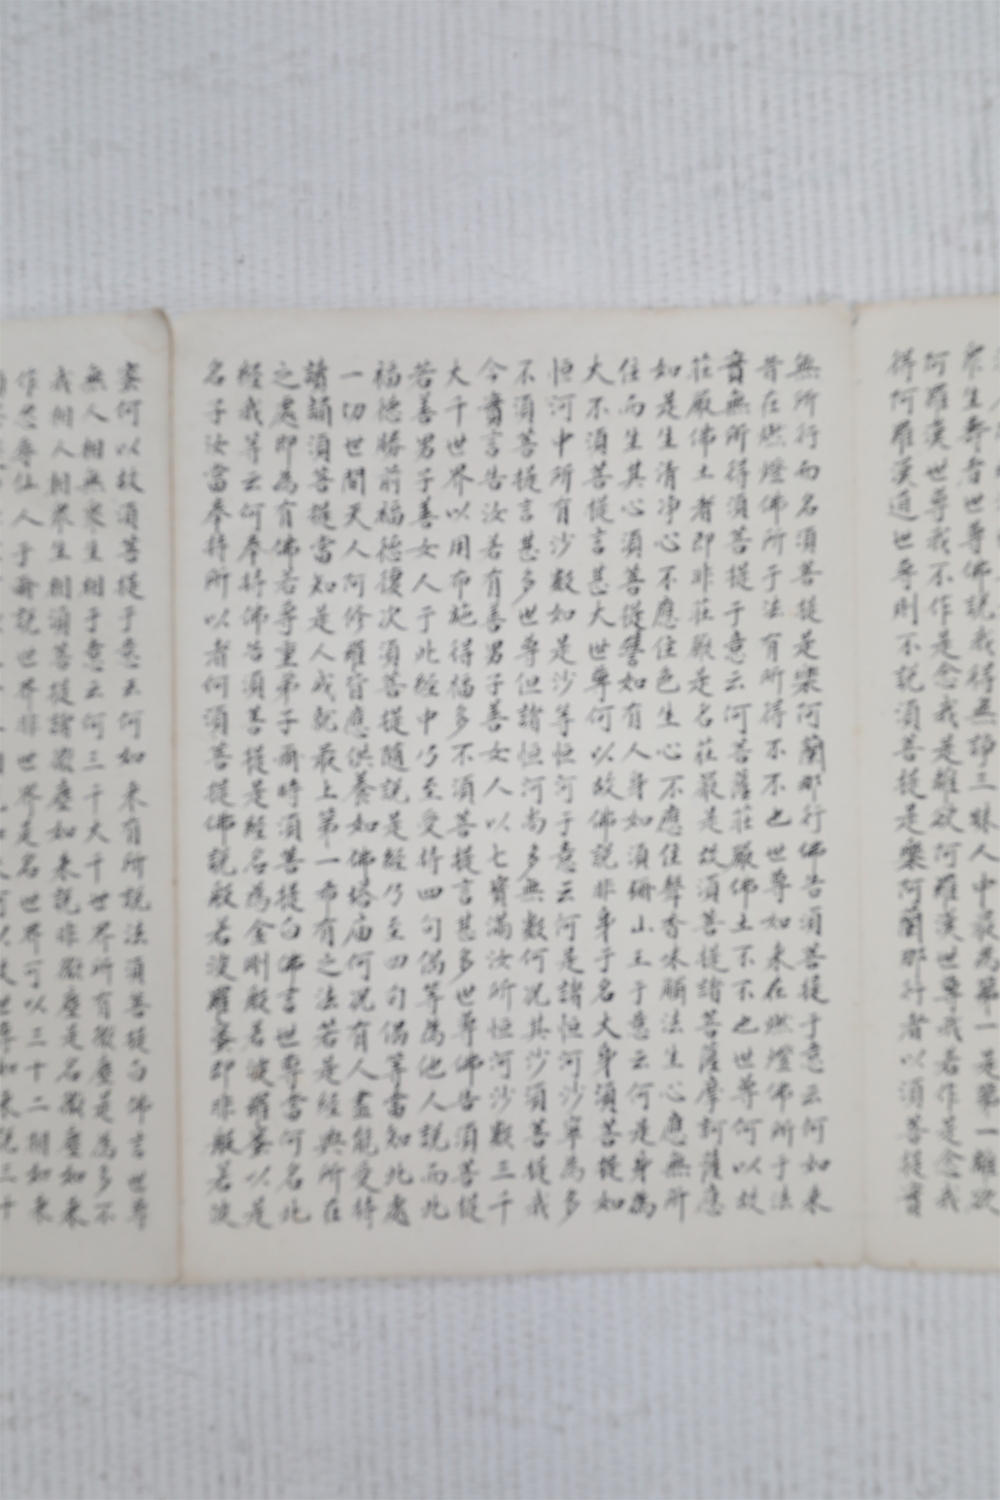 眾生壽者世尊佛說我得無諍三昧人中最為第一是第一離欲
阿羅漢世尊我不作是念我是離欲阿羅漢世尊我若作是念我
得阿羅漢道世尊則不說須菩提是樂阿蘭那行者以須菩提實
無所行而名須菩提是樂阿蘭那行佛告須菩提于意云何如來
昔在燃燈佛所于法有所得不不也世尊如來在燃燈佛所于法
實無所得須菩提于意云何菩薩莊嚴佛土不不也世尊何以故
莊嚴佛土者即非莊嚴是名莊嚴是故須菩提諸菩薩摩訶薩應
如是生清淨心不應住色生心不應住聲香味觸法生心應無所
住而生其心須菩提譬如有人身如須彌山王于意云何是身為
大不須菩提言甚大世尊何以故佛說非身于名大身須菩提如
恒河中所有沙數如是沙等恒河于意云何是諸恒河沙寧為多
不須菩提言甚多世尊但諸恒河尚多無數何況其沙須菩提我
今實言告汝若有善男子善女人以七寶滿汝所恒河沙數三千
大千世界以用布施得福多不須菩提言甚多世尊佛告須菩提
若善男子善女人于此經中乃至受持四句偈等為他人說而此
福德勝前福德復次須菩提隨說是經乃至四句偈等當知此處
一切世間天人阿修羅皆應供養如佛塔廟何況有人盡能受持
讀誦須菩提當知是人成就最上第一希有之法若是經典所在
之處即為有佛若尊重弟子爾時須菩提白佛言世尊當何名此
經我等云何奉持佛告須菩提是經名為金剛般若波羅蜜以是
名子汝當奉持所以者何須菩提佛說般若波羅蜜即非般若波
蜜何以故須菩提于意云何如來有所說法須菩提白佛言世尊
無人相無眾生相于意云何三千大千世界所有微塵是為多不
我相人相眾生相須菩提諸微塵如來說非微塵是名微塵如來
作忍辱仙人于爾說世界非世界是名世界可以三十二相如來